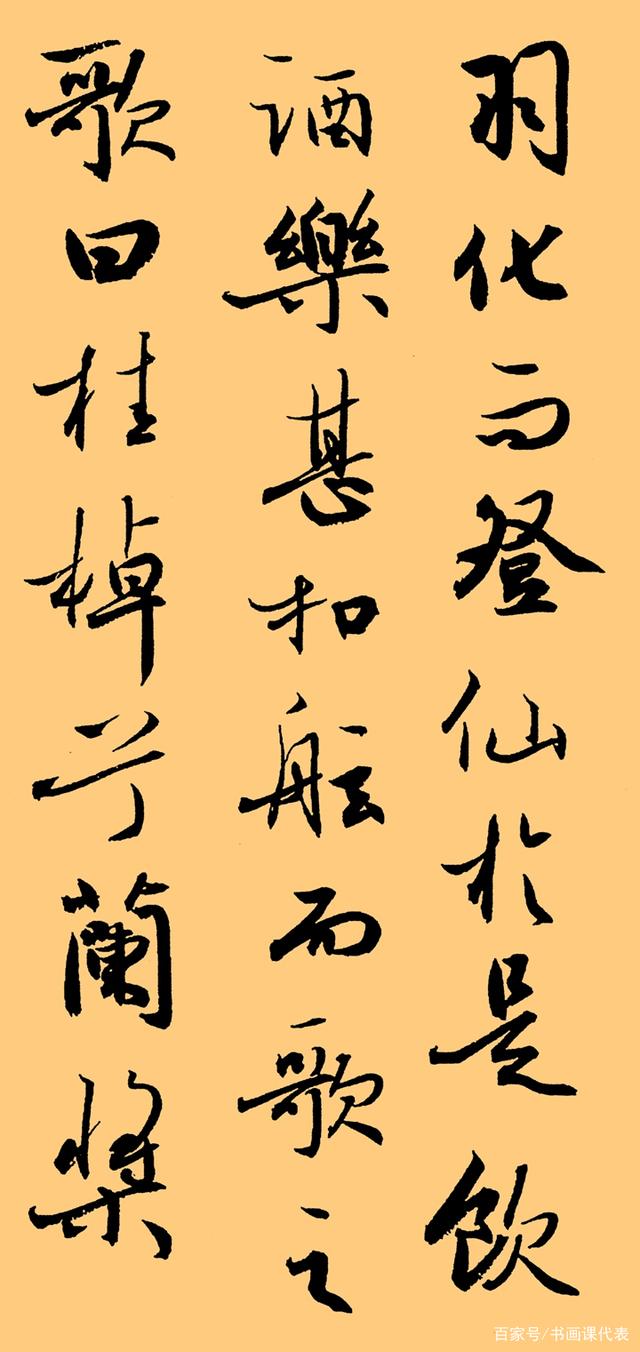 羽化而登仙於是飲
酒樂甚扣舷而歌之
歌曰桂棹兮蘭槳
百家号/书画课代表